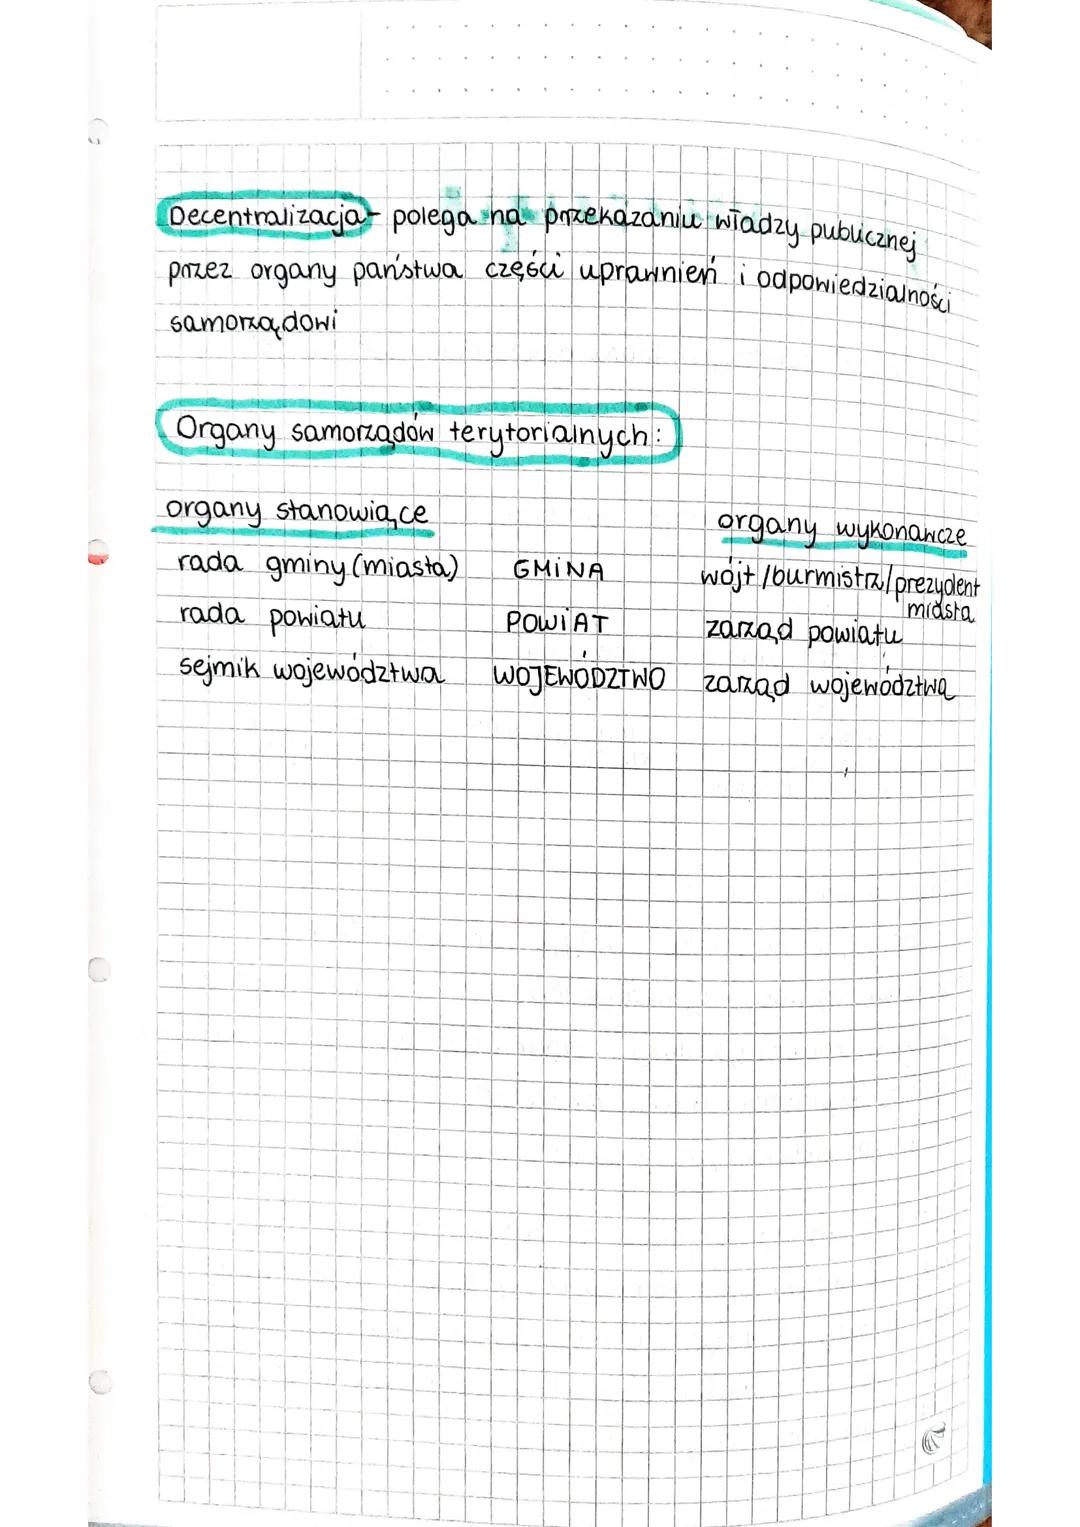 Decentralizacja - polega na przekazaniu władzy publicznej
przez organy państwa części uprawnień i odpowiedzialności
samorządowi
Organy samorządów terytorialnych:
organy stanowiące organy wykonawcze
rada gminy (miasta) GMINA wójt / burmistrz / prezydent
miasta
rada powiatu POWIAT zarząd powiatu
sejmik województwa WOJEWÓDZTWO zarząd województwa